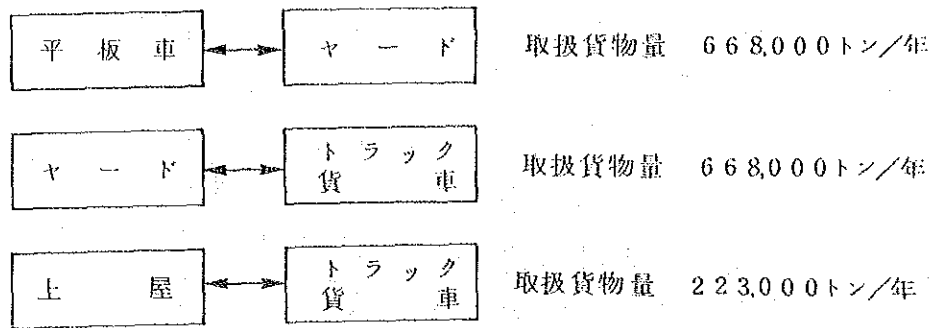 平板車 ヤード 取扱貨物量 668,000トン/年
ヤード トラック 貨車 取扱貨物量 668,000トン/年
上屋 トラック 貨車 取扱貨物量 223,000トン/年